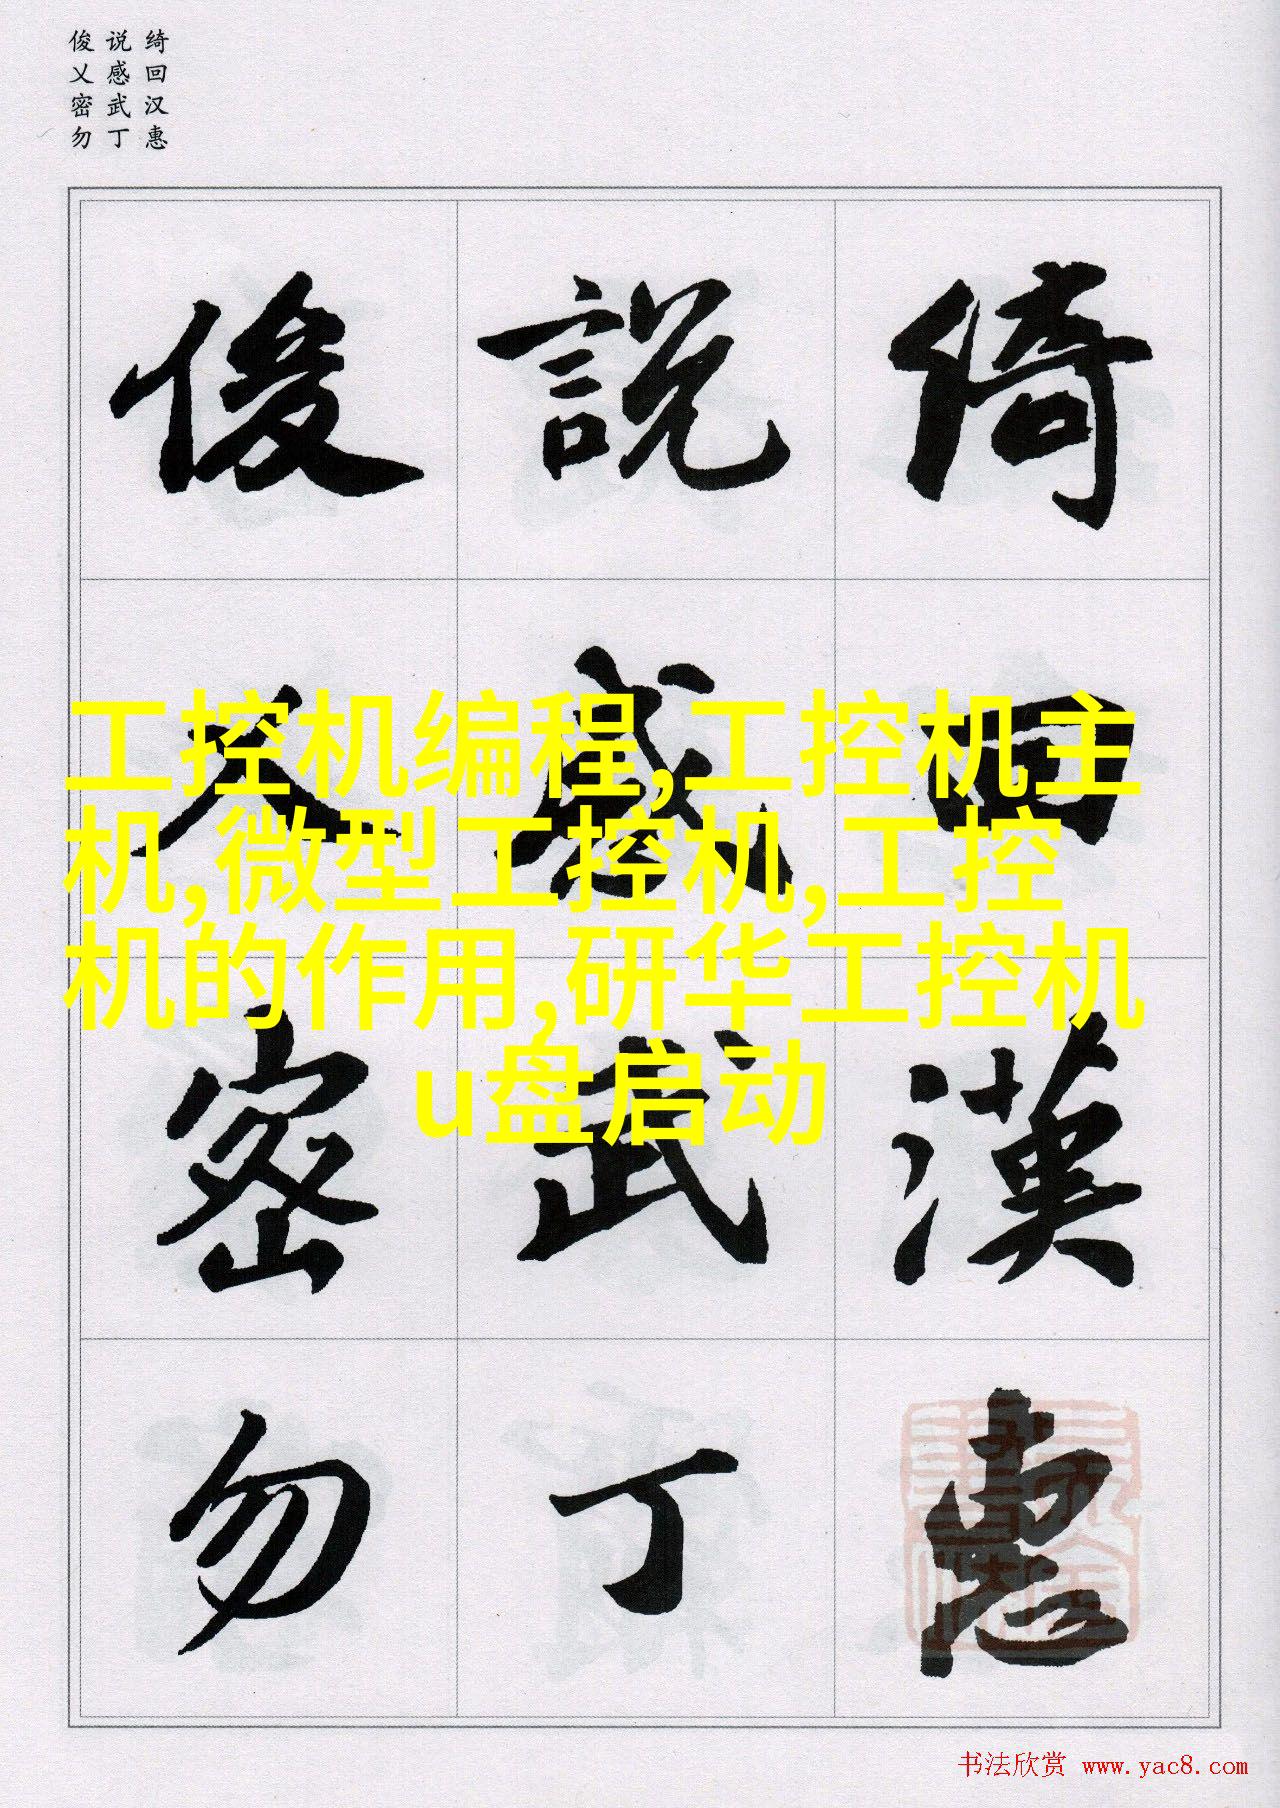 俊 说 绮
乂 感 回
密 武 汉
勿 丁 惠
俊 說 綺
乂 感 回
密 武 漢
勿 丁 惠
工控机编程,工控机主
机,微型工控机,工控
机的作用,研华工控机
u盘启动
书法欣赏 www.yac8.com